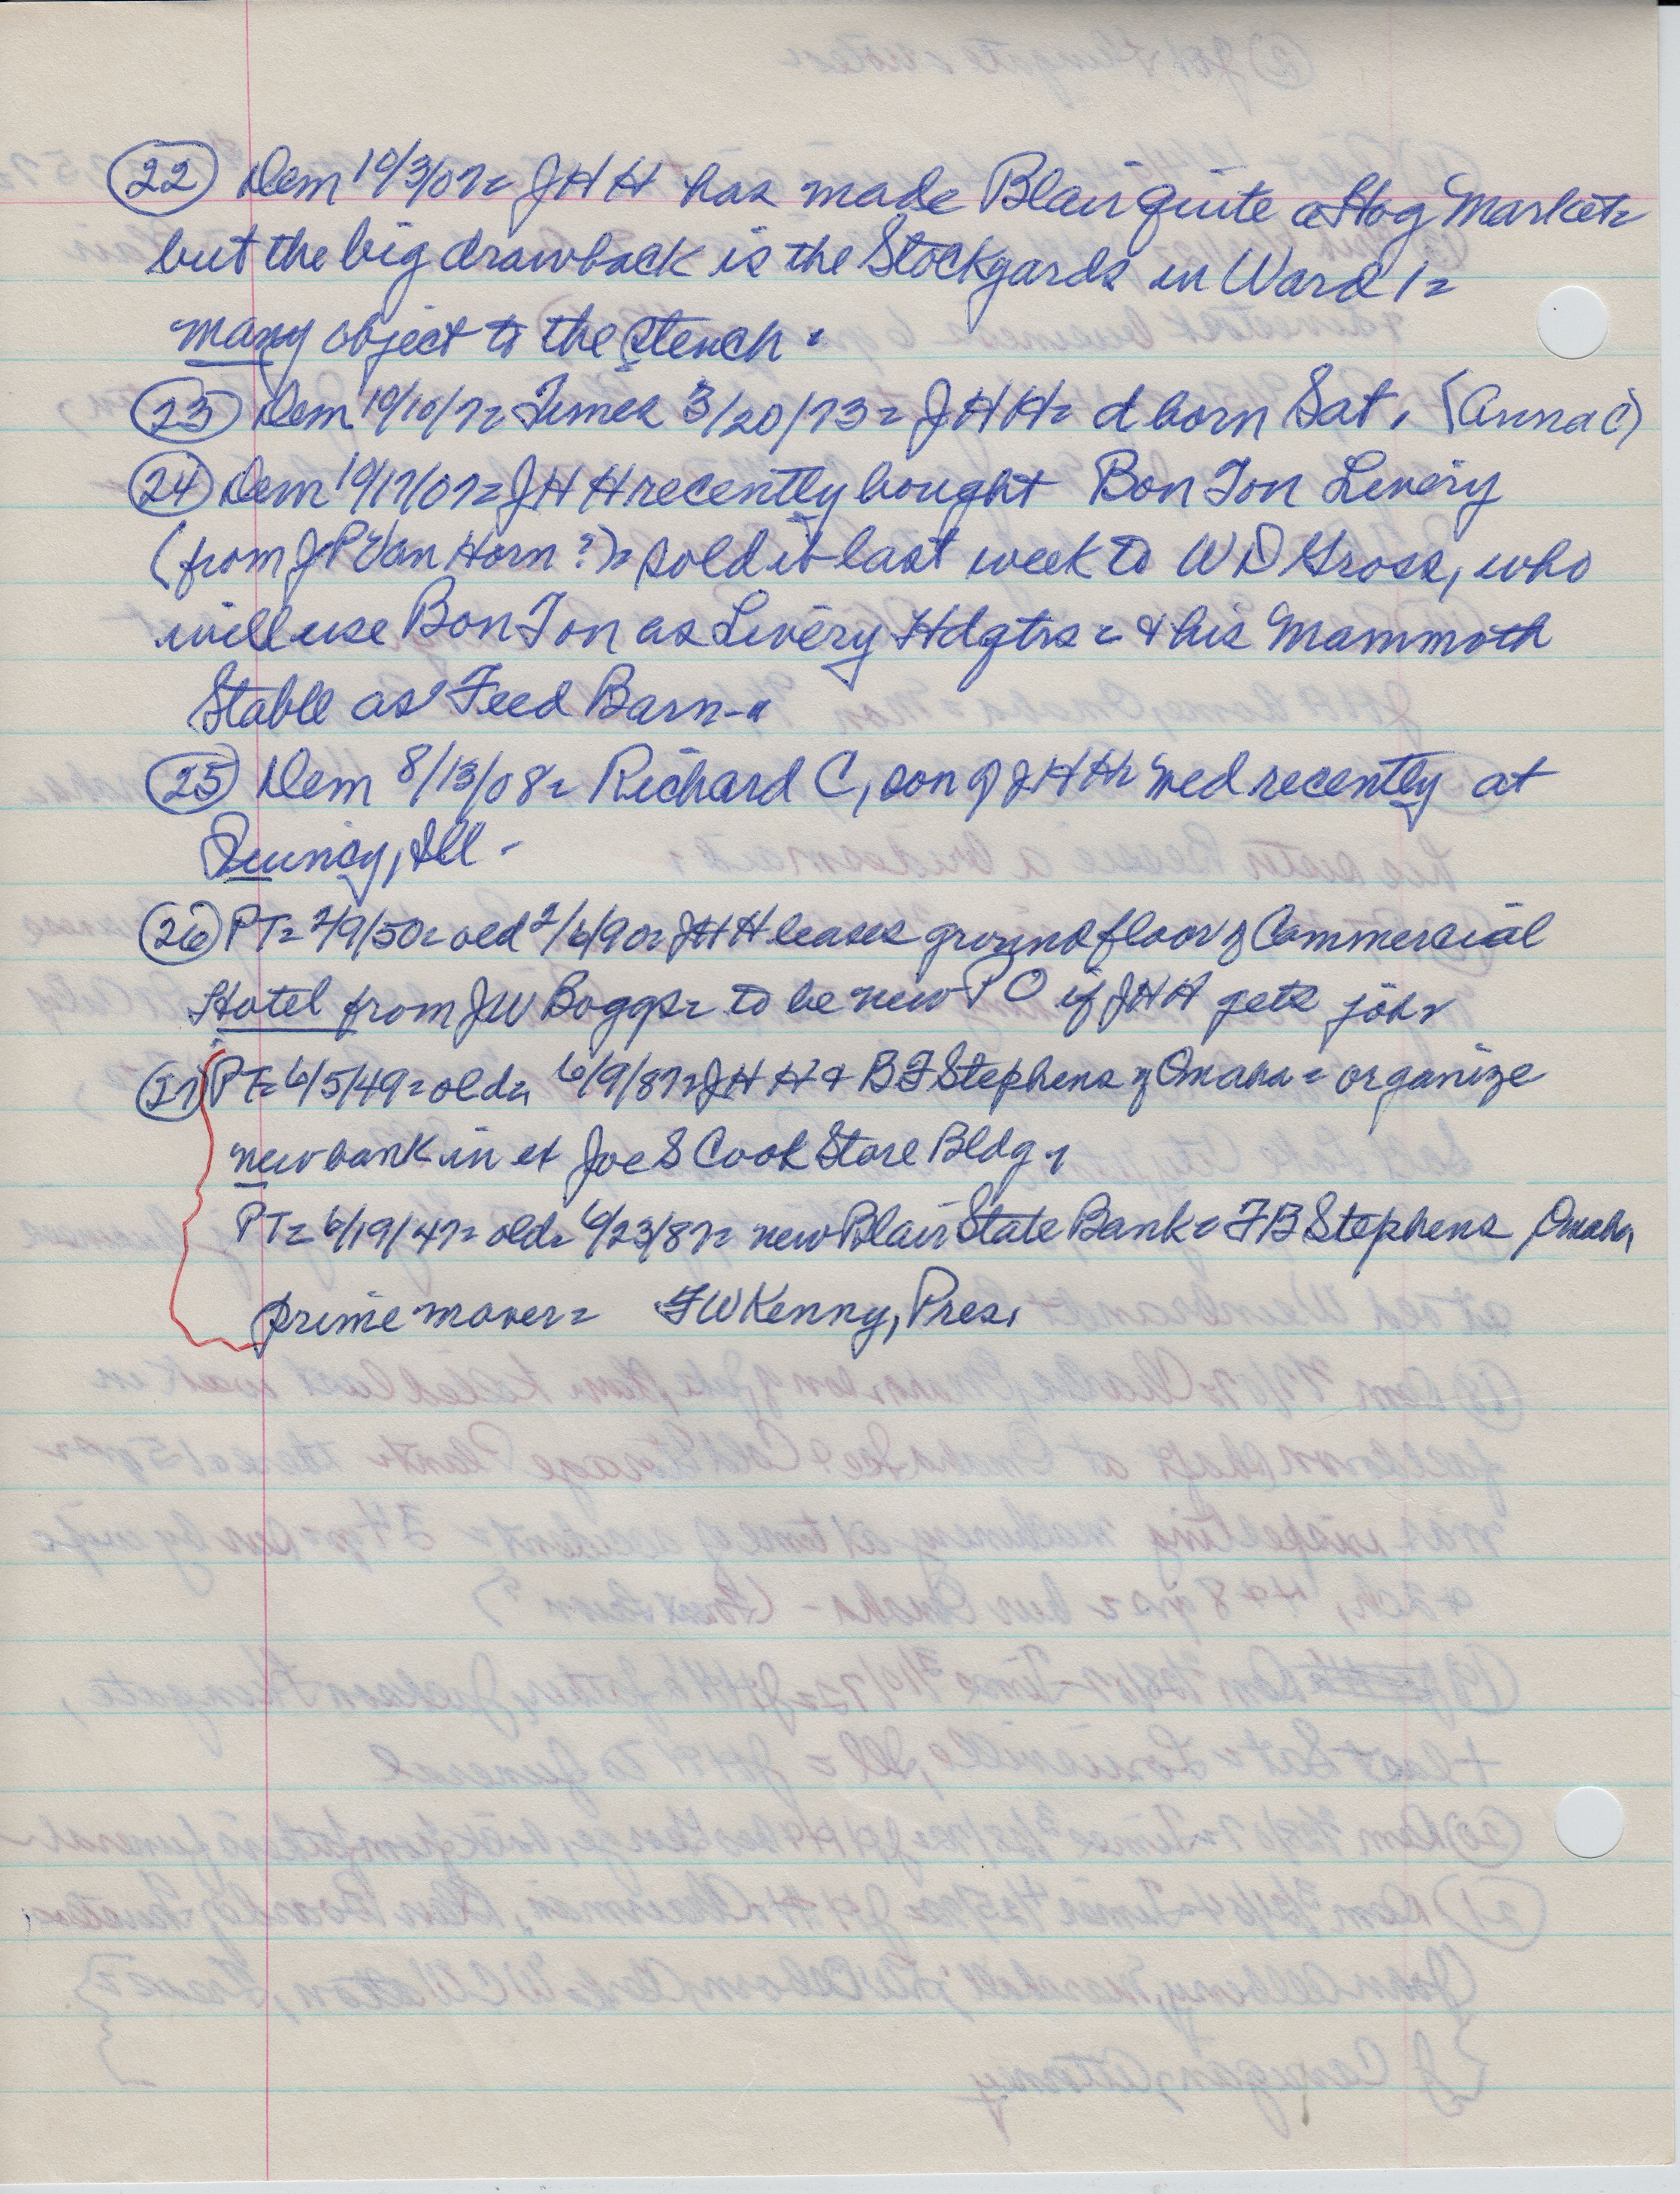 (22) Dem 10/3/07= JHH has made Blair quite a Hog Market=
but the big drawback is the Stockyards in Ward 1=
many object to the stench.
(23) Dem 10/10/7= Times 3/20/73= JHH= d born Sat. (Anna C)
(24) Dem 10/17/07= JHH recently bought Bon Ton Livery
(from JP Van Horn?)= sold it last week to WD Gross, who
will use Bon Ton as Livery Hdqtrs= & his Mammoth
Stable as Feed Barn-
(25) Dem 8/13/08= Richard C, son of JHH= wed recently at
Quincy, Ill-
(26) PT= 2/9/50= old 2/6/90= JHH leases ground floor of Commercial
Hotel from JW Boggs= to be new PO if JHH gets job=
(27) PT= 6/5/49= old= 6/9/87= JHH & BF Stephens of Omaha= organize
new bank in ex Joe S Cook Store Bldg.
PT= 6/19/47= old= 6/23/87= new Blair State Bank= FB Stephens, Omaha,
prime mover= FW Kenny, Pres.